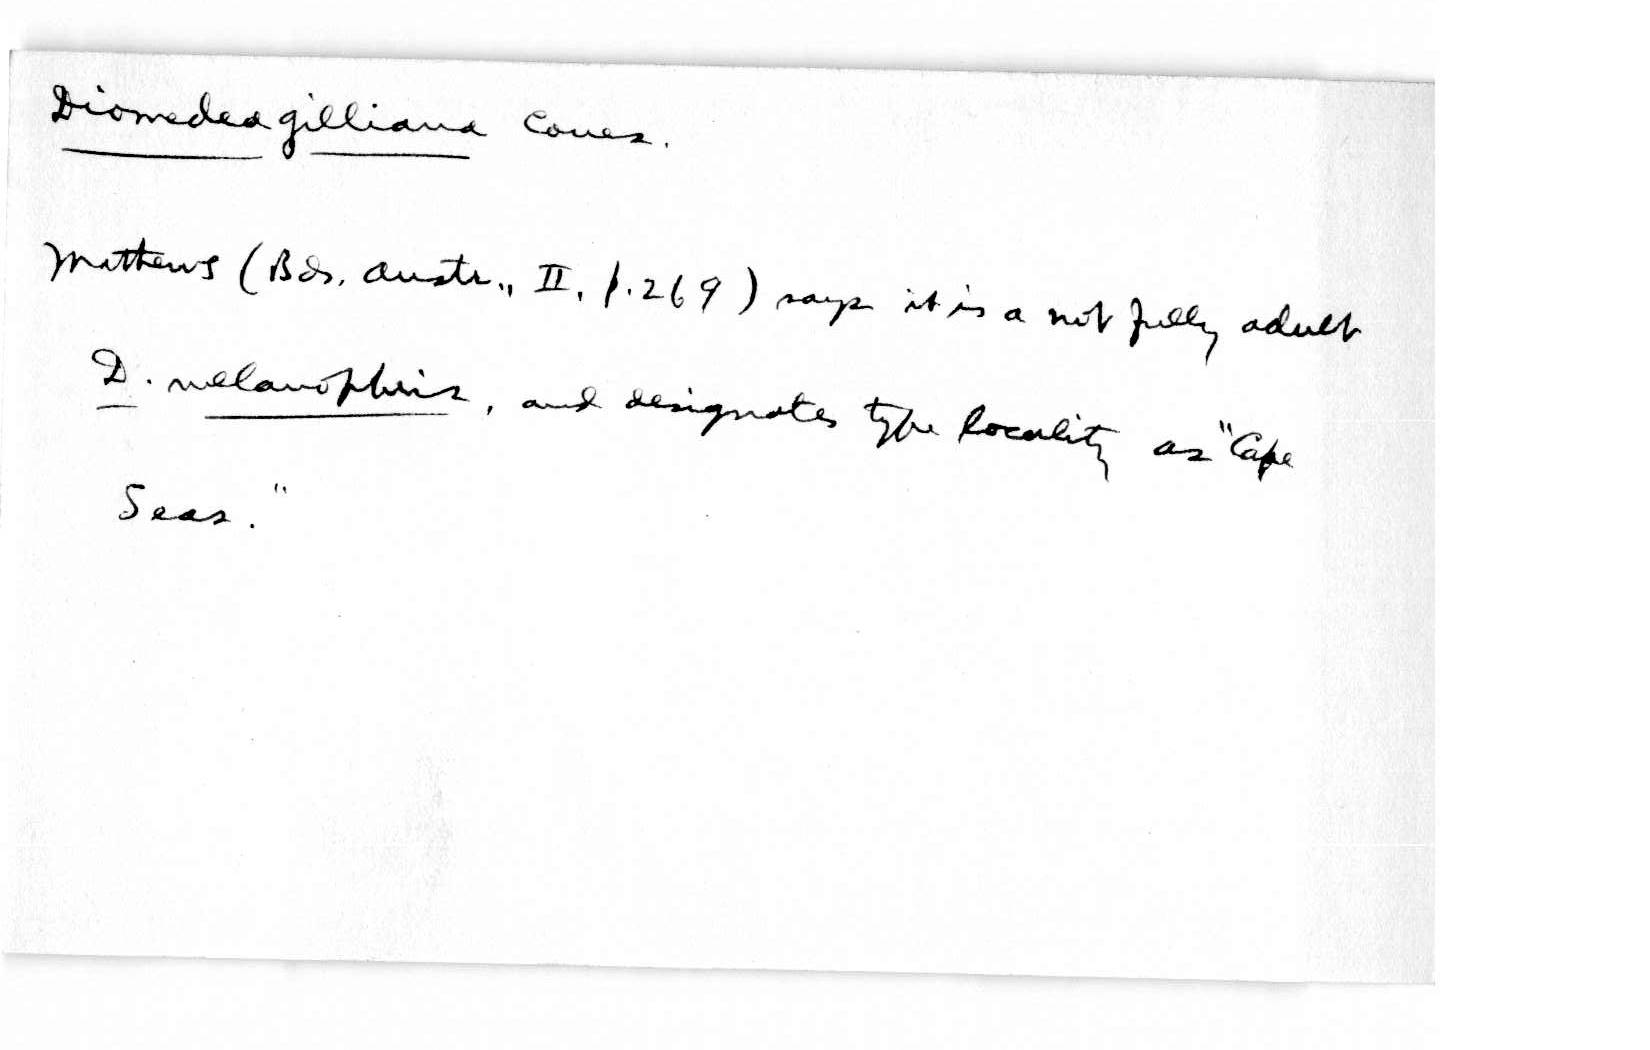 Diomedea gilliana Coues.
Mathews (Bds. Austr., II, p. 269) says it is a not fully adult
D. melanophris, and designates type locality as "Cape
Seas."